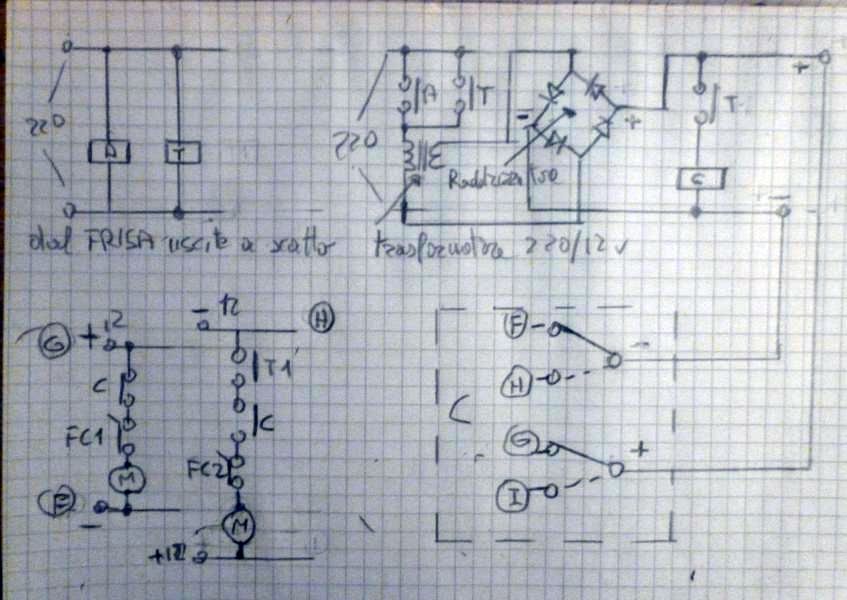 220
A
T
dal FRISA uscite a scatto
220
A
T
Raddrizzatore
trasformatore 220/12 v
-
+
T
C
+
-
G
+12
C
FC1
M
F
-
- 12
H
T1
C
FC2
M
+12
C
F
-
H
G
+
I